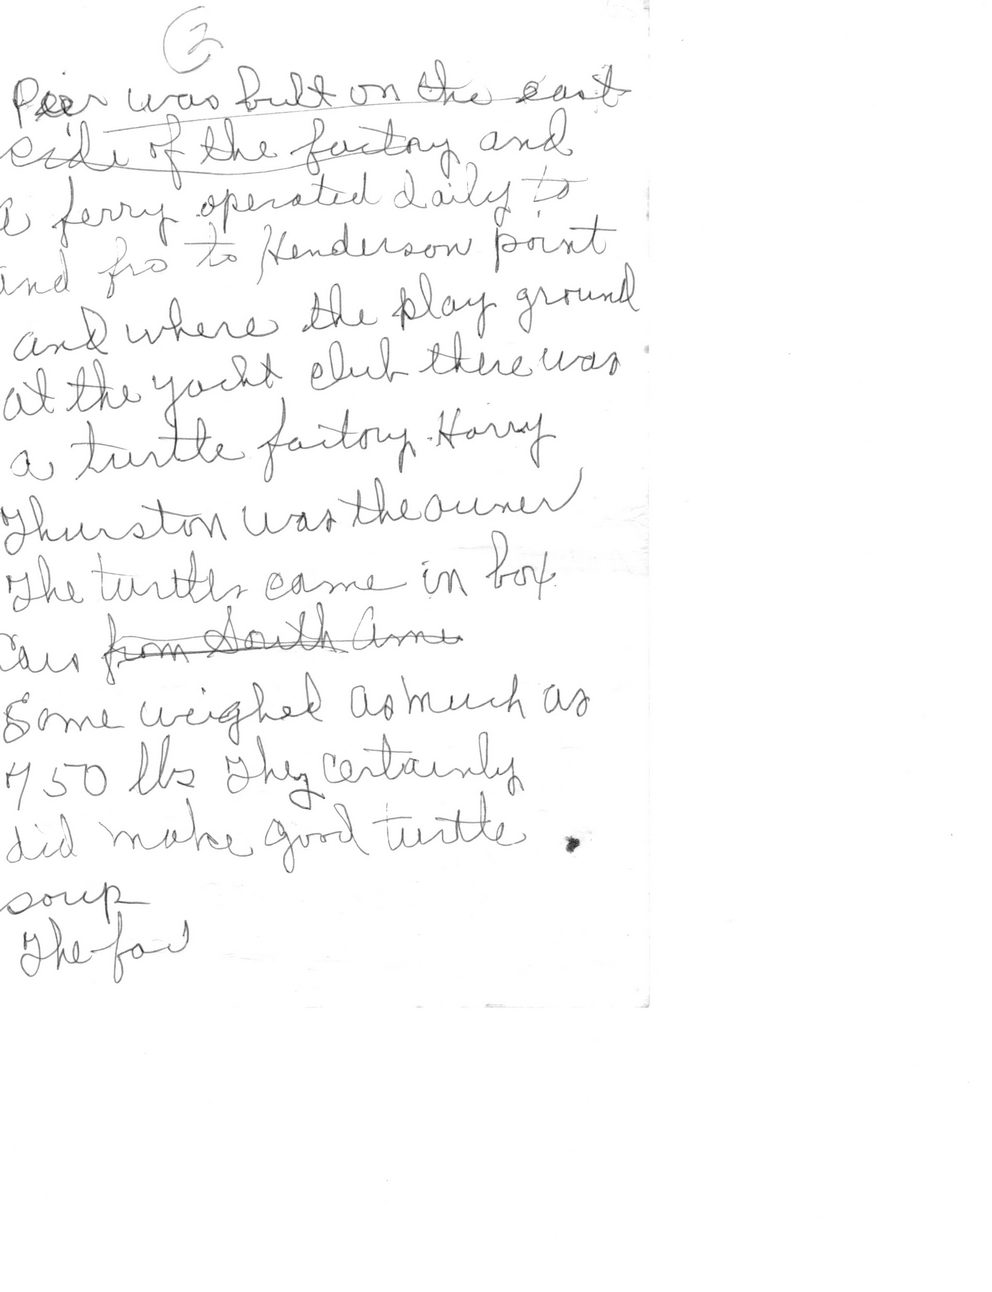 3
Peer was bult on the east
side of the factory and
a ferry operated daily to
and fro to Henderson point
and where the play ground
at the yacht club there was
a turtle factory. Harry
Thurston was the owner
The turtles came in box
cars from South Ame
Some weighed as much as
750 lbs They certainly
did make good turtle
soup
The fac